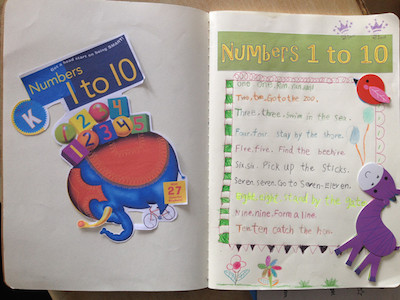 Get a head start on being SMART!
Numbers
1 to 10
K
1 2 0 4
1 2 3 4 5
27
NUMBERS 1 to 10
One, one, run, run, run
Two, two, Go to the zoo.
Three, three, swim in the sea.
Four, four, stay by the shore.
Five, five. Find the beehive.
Six, six. Pick up the sticks.
Seven, seven. Go to Seven-Eleven.
Eight, Eight, Stand by the gate.
Nine, nine. Form a line.
Ten ten catch the hen.